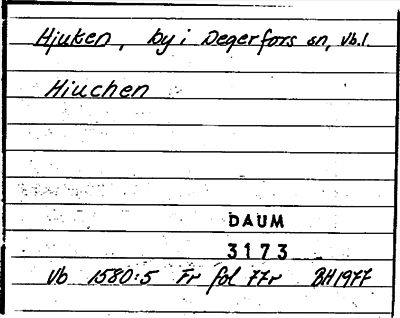 Hjuken, by i Degerfors sn, Vb.l.
Hiuchen
DAUM
3173
Vb 1580:5 Fr fol 77r BH 1977